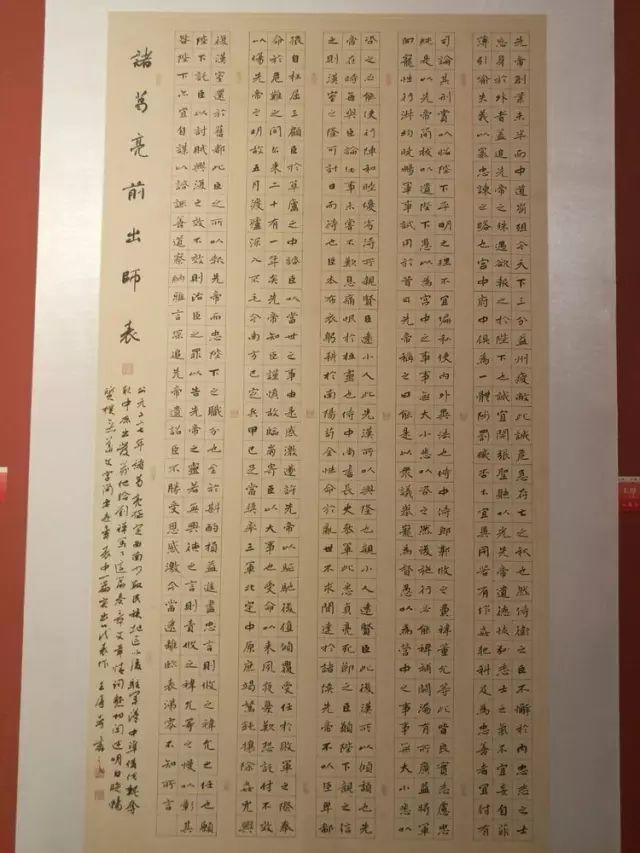 先帝創業未半而中道崩殂今天下三分益州疲敝此誠危急存亡之秋也然侍衛之臣不懈於內忠志之士
忘身於外者蓋追先帝之殊遇欲報之於陛下也誠宜開張聖聽以光先帝遺德恢弘志士之氣不宜妄自菲
薄引喻失義以塞忠諫之路也宮中府中俱為一體陟罰臧否不宜異同若有作姦犯科及為忠善者宜付有
司論其刑賞以昭陛下平明之理不宜偏私使內外異法也侍中侍郎郭攸之費禕董允等此皆良實志慮忠
純是以先帝簡拔以遺陛下愚以為宮中之事事無大小悉以咨之然後施行必能裨補闕漏有所廣益將軍
向寵性行淑均曉暢軍事試用於昔日先帝稱之曰能是以眾議舉寵為督愚以為營中之事事無大小悉以
咨之必能使行陣和睦優劣得所親賢臣遠小人此先漢所以興隆也親小人遠賢臣此後漢所以傾頹也先
帝在時每與臣論此事未嘗不歎息痛恨於桓靈也侍中尚書長史參軍此悉貞亮死節之臣願陛下親之信
之則漢室之隆可計日而待也臣本布衣躬耕於南陽苟全性命於亂世不求聞達於諸侯先帝不以臣卑鄙
猥自枉屈三顧臣於草廬之中諮臣以當世之事由是感激遂許先帝以驅馳後值傾覆受任於敗軍之際奉
命於危難之間爾來二十有一年矣先帝知臣謹慎故臨崩寄臣以大事也受命以來夙夜憂歎恐託付不效
以傷先帝之明故五月渡瀘深入不毛今南方已定兵甲已足當獎率三軍北定中原庶竭駑鈍攘除姦兇興
復漢室還於舊都此臣之所以報先帝而忠陛下之職分也至於斟酌損益進盡忠言則攸之禕允之任也願
陛下託臣以討賊興復之效不效則治臣之罪以告先帝之靈若無興德之言則責攸之禕允等之慢以彰其
咎陛下亦宜自謀以諮諏善道察納雅言深追先帝遺詔臣不勝受恩感激今當遠離臨表涕零不知所言
諸葛亮前出師表
公元二二七年諸葛亮定西南少數民族地區后駐軍漢中準備伐魏
中原出發前他給劉禪寫了這篇奏章文章情詞懇切闡述明白曉暢
表中一篇突出代表作